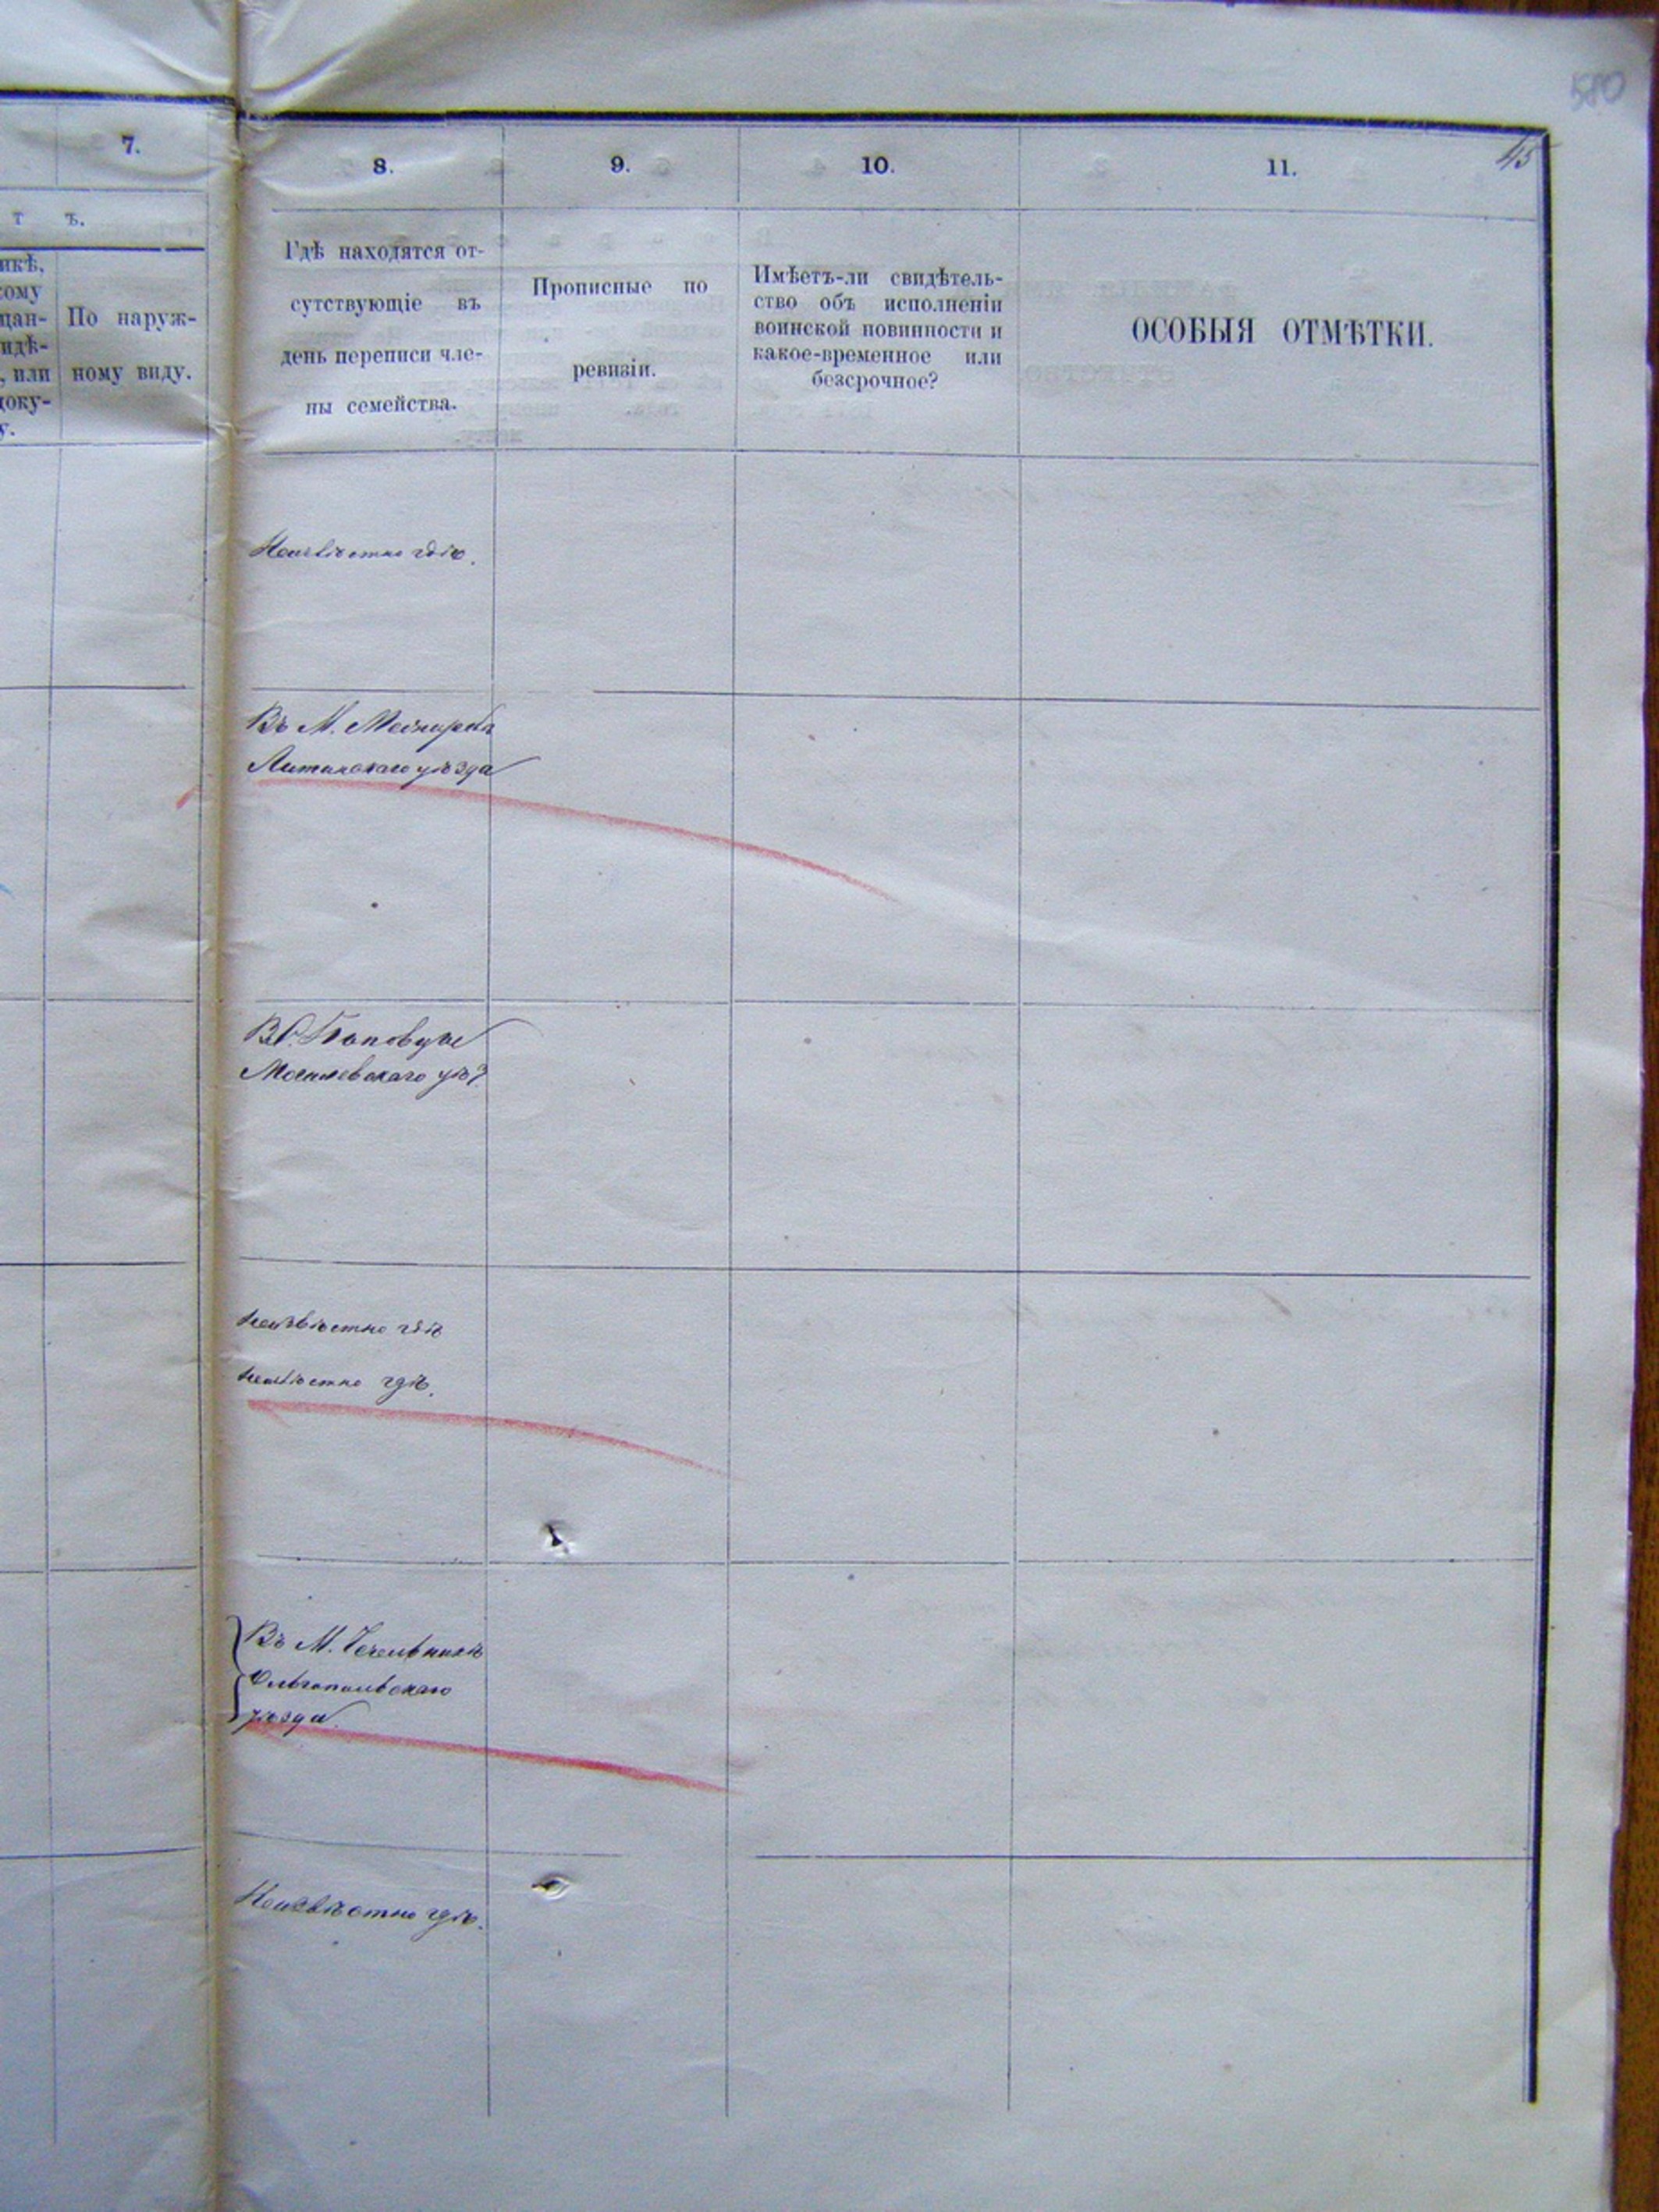 580
45
7.
8.
9.
10.
11.
т ъ.
икѣ,
кому
цан-
идѣ-
, или
доку-
у.
По наруж-
ному виду.
Гдѣ находятся от-
сутствующіе въ
день переписи чле-
ны семейства.
Прописные по
ревизіи.
Имѣетъ-ли свидѣтель-
ство объ исполненіи
воинской повинности и
какое-временное или
безсрочное?
ОСОБЫЯ ОТМѢТКИ.
Неизвѣстно гдѣ.
Въ М.
Литинскаго уѣзда
В С.
Могилевскаго уѣз
Неизвѣстно гдѣ
Неизвѣстно гдѣ.
Въ М. Чечельникѣ
Ольгопольскаго
уѣзда.
Неизвѣстно гдѣ.